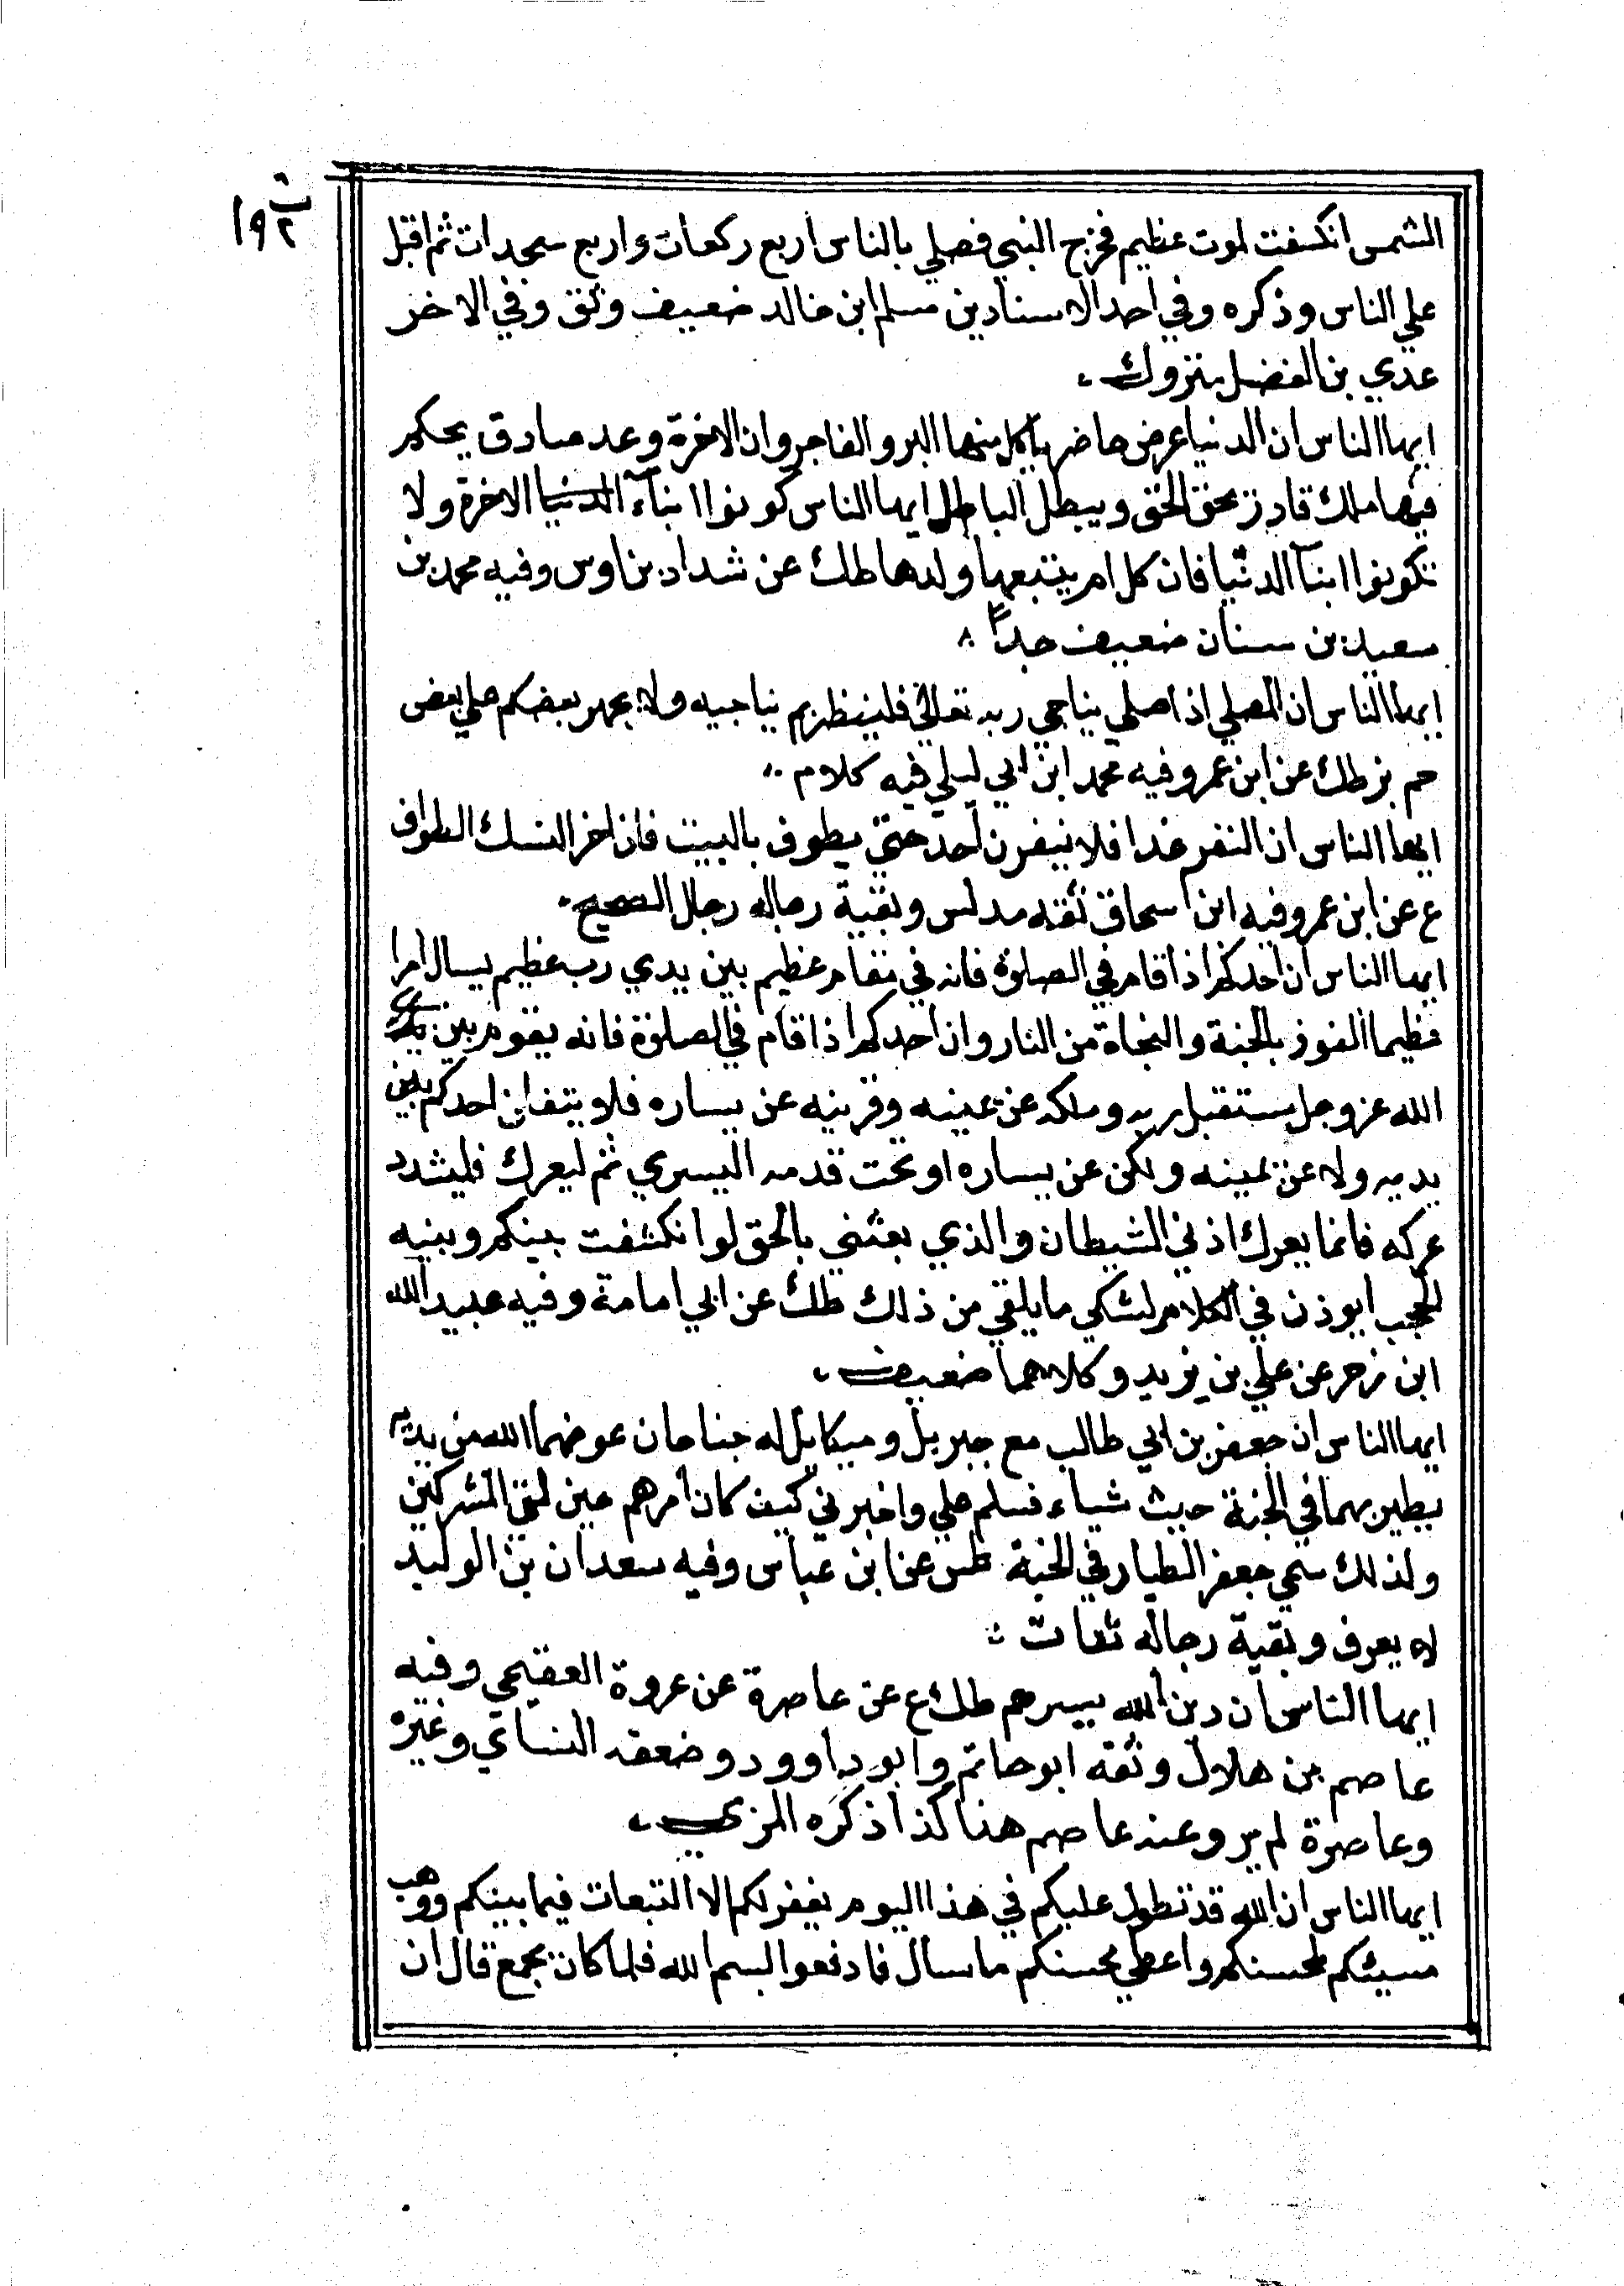 ١٩٢
الشمس انكسفت لموت عظيم فخرج النبي فصلي بالناس اربع ركعات واربع سجدات ثم اقبل
علي الناس وذكره وفي احد الاسنادين مسلم ابن خالد ضعيف وثق وفي الاخر
عدي بن الفضل متروك
ايها الناس ان الدنيا عرض حاضر ياكل منها البر والفاجر وان الاخرة وعد صادق يحكم
فيها ملك قادر يحق الحق ويبطل الباطل ايها الناس كونوا ابناء الدنيا الاخرة ولا
تكونوا ابنآ الدنيا فان كل ام يتبعها ولدها طك عن شداد بن اوس وفيه محمد بن
سعيد بن سنان ضعيف جداً
ايها الناس ان المصلي اذا صلي يناجي ربه تعالي فلينظر بم يناجيه ولا يجهر بعضكم علي بعض
حم بز طك عن ابن عمر وفيه محمد ابن ابي ليلي فيه كلام
ايها الناس ان النفر غدا فلا ينفرن احد حتي يطوف بالبيت فان اخر النسك الطواف
ع عن ابن عمر وفيه ابن اسحاق ثقة مدلس وبقية رجاله رجال الصحيح
ايها الناس ان احدكم اذا قام في الصلوة فانه في مقام عظيم بين يدي رب عظيم يسال امرا
عظيما الفوز بالجنة والنجاة من النار وان احدكم اذا قام في الصلوة فانه يقوم بين يدي
الله عز وجل مستقبل ربه وملكه عن يمينه وقرينه عن يساره فلا يتفلن احدكم بين
يديه ولا عن يمينه ولكن عن يساره او تحت قدمه اليسري ثم ليعرك فليشدد
عركه فانما يعرك اذني الشيطان والذي بعثني بالحق لو انكشفت بينكم وبينه
الحجب ايوذن في الكلام لشكي ما يلقي من ذلك طك عن ابي امامة وفيه عبيد الله
ابن زحر عن علي بن يزيد وكلاهما ضعيف
ايها الناس ان جعفر بن ابي طالب مع جبريل وميكايل له جناحان عوضهما الله من يديه
يطير بهما في الجنة حيث شياء فسلم علي واخبرني كيف كان امرهم حين لقي المشركين
ولذلك سمي جعفر الطيار في الجنة طس عن ابن عباس وفيه سعدان بن الوليد
لا يعرف وبقية رجاله ثقات
ايها الناس ان دين الله ييسرهم طك ع عن عاصرة عن عروة العقيمي وفيه
عاصم بن هلال وثقه ابو حاتم وابو داوود وضعفه النساي وغيره
وعاصرة لم يرو عنه عاصم هنا كذا ذكره المزي
ايها الناس ان الله قد تطول عليكم في هذا اليوم يغفر لكم الا التبعات فيما بينكم ووهب
مسيئكم لمحسنكم واعطي محسنكم ما سال فادفعوا بسم الله فلما كان بجمع قال ان